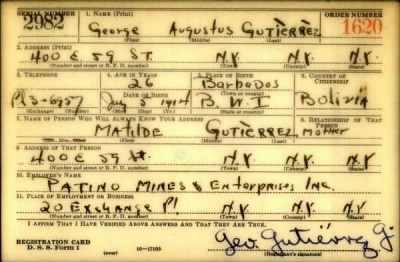 SERIAL NUMBER 1. NAME (Print) ORDER NUMBER
2982 George Augustus Gutierrez 1620
(First) (Middle) (Last)
2. ADDRESS (Print)
400 E 59 ST. N.Y. N.Y. N.Y.
(Number and street or R. F. D. number) (Town) (County) (State)
3. TELEPHONE 4. AGE IN YEARS 5. PLACE OF BIRTH 6. COUNTRY OF CITIZENSHIP
26 Barbados
DATE OF BIRTH (Town or county)
Pl 3-6957 5 1914 B.W.I Bolivia
(Exchange) (Number) (Mo.) (Day) (Yr.) (State or country)
7. NAME OF PERSON WHO WILL ALWAYS KNOW YOUR ADDRESS 8. RELATIONSHIP OF THAT PERSON
Matilde Gutierrez Mother
(Mr., Mrs., Miss) (First) (Middle) (Last)
9. ADDRESS OF THAT PERSON
400 E 59 St. N.Y. N.Y. N.Y.
(Number and street or R. F. D. number) (Town) (County) (State)
10. EMPLOYER'S NAME
Patino Mines & Enterprises Inc.
11. PLACE OF EMPLOYMENT OR BUSINESS
20 Exchange Pl N.Y. N.Y. N.Y.
(Number and street or R. F. D. number) (Town) (County) (State)
I AFFIRM THAT I HAVE VERIFIED ABOVE ANSWERS AND THAT THEY ARE TRUE.
REGISTRATION CARD
D. S. S. Form 1 (over) 16—17105
Geo. Gutiérrez G.
(Registrant's signature)